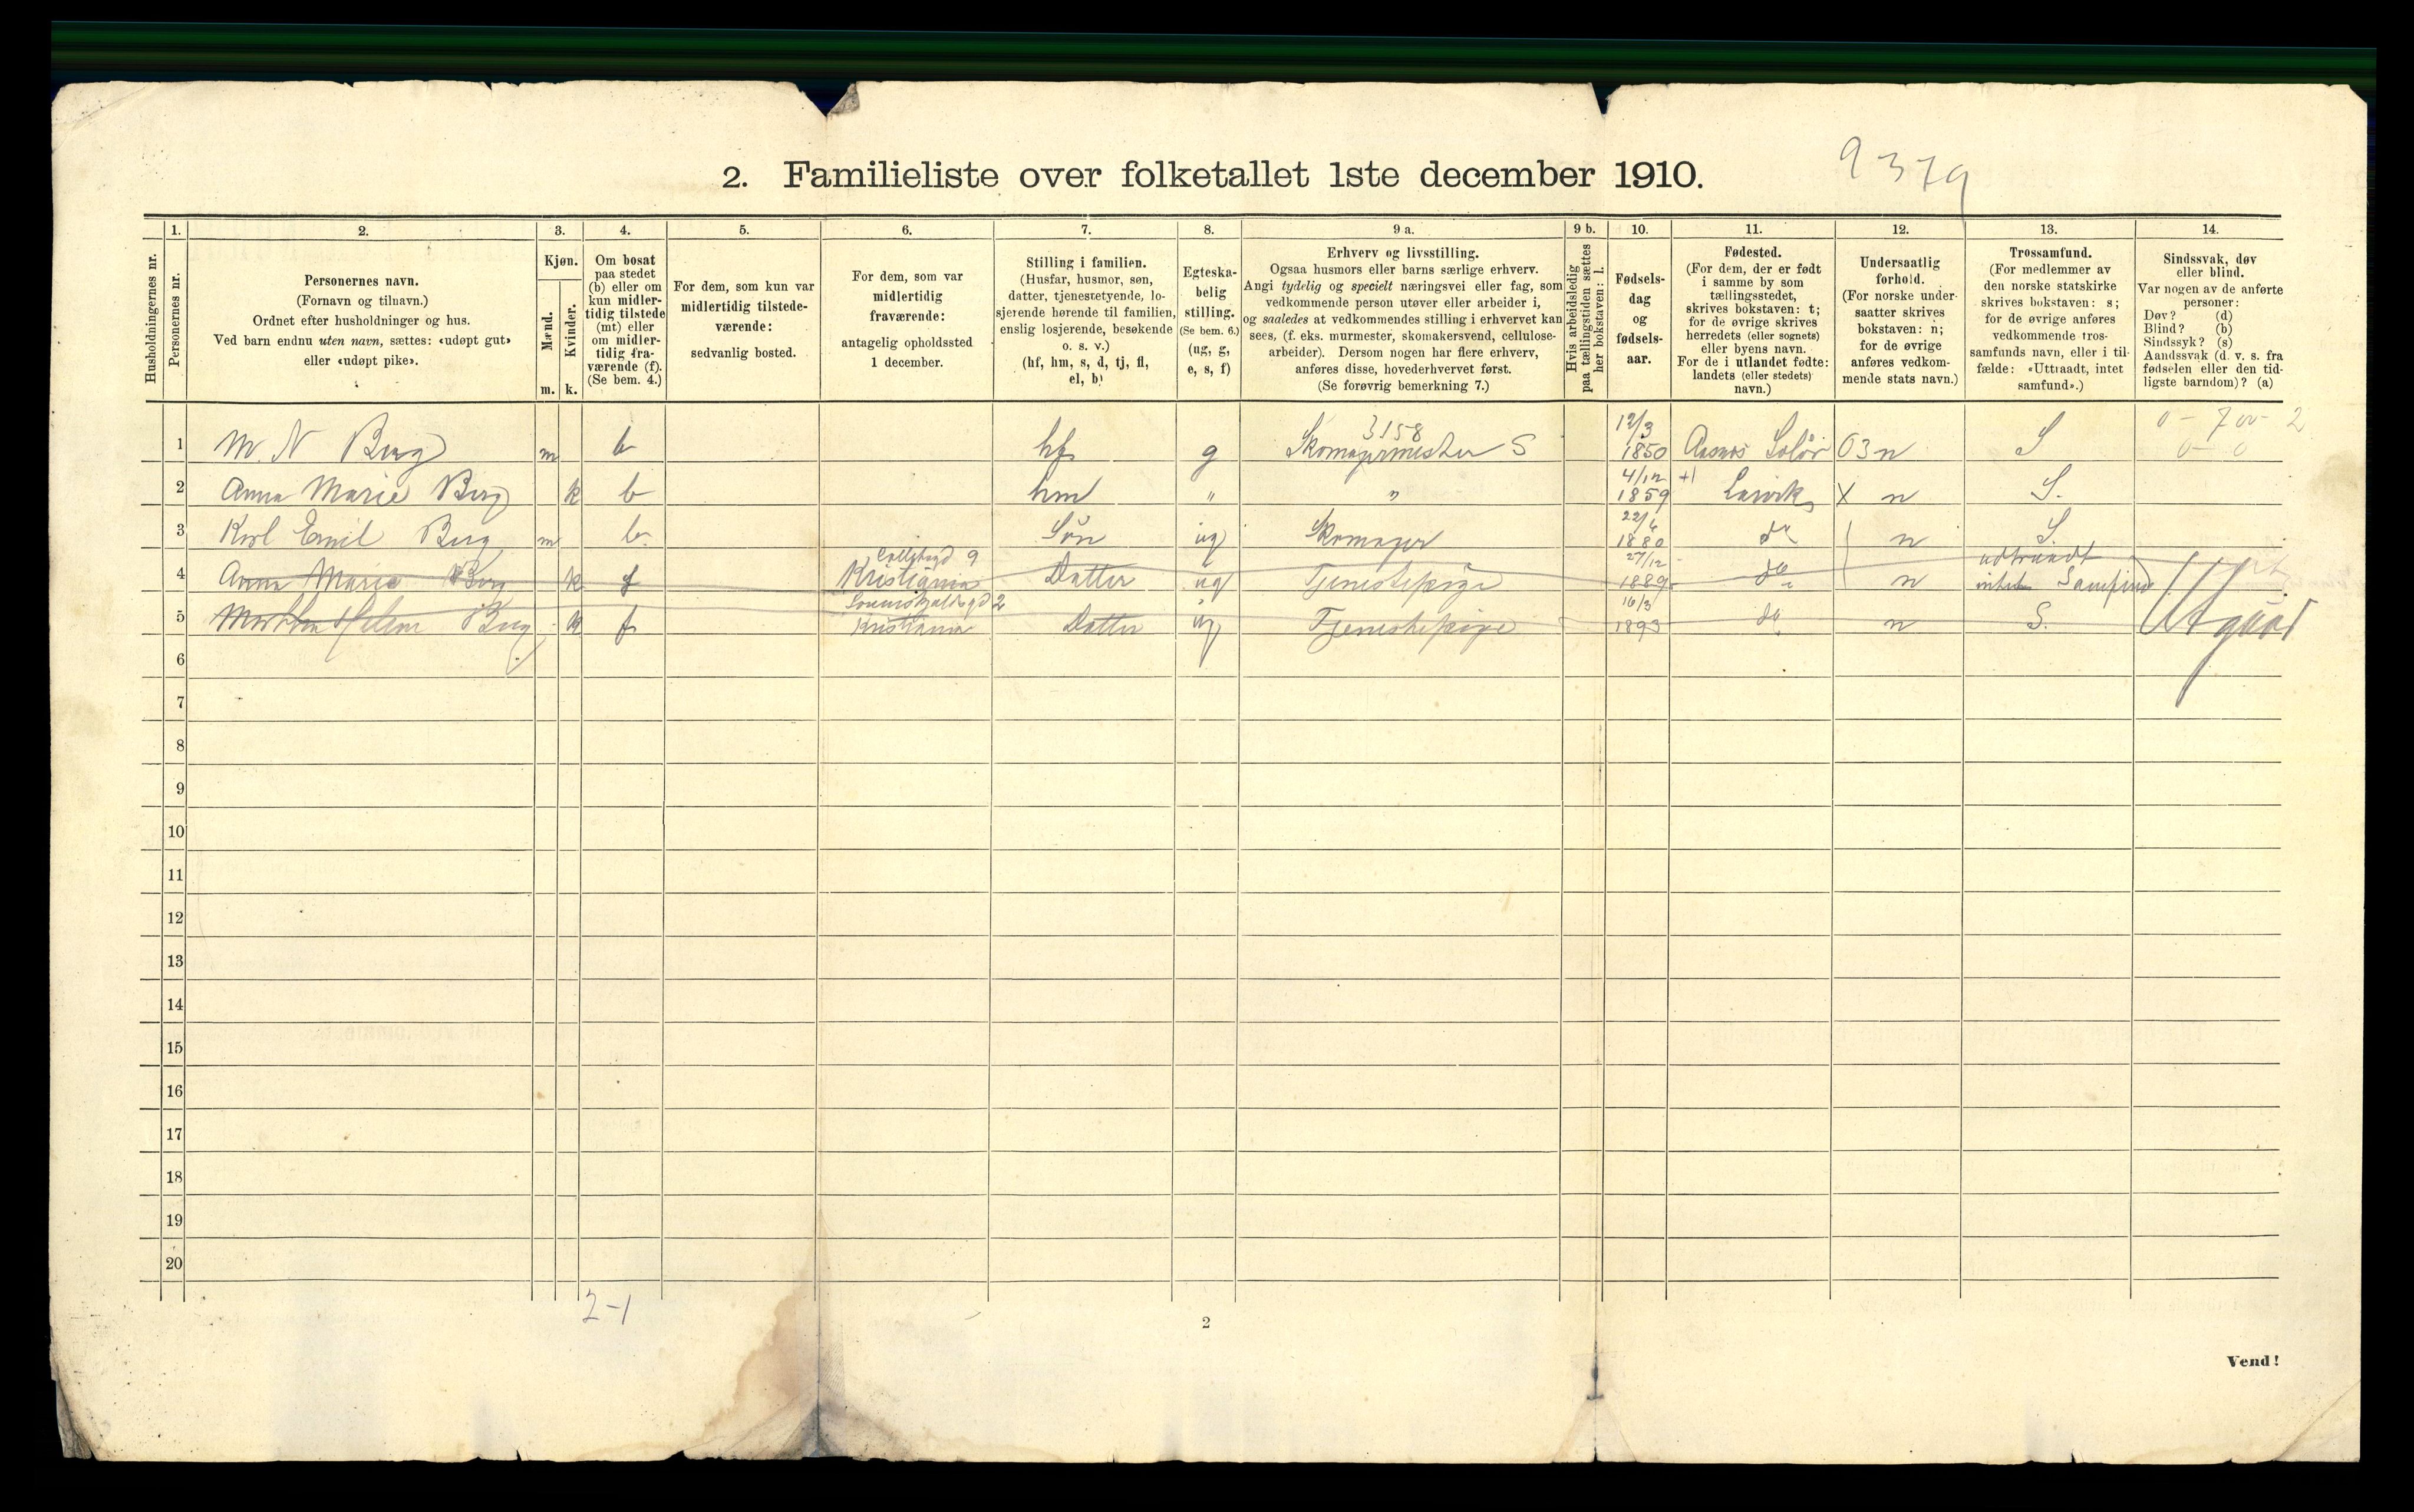 2. Familieliste over folketallet 1ste december 1910.
9379
Husholdningernes nr.
1.
Personernes nr.
2.
Personernes navn.
(Fornavn og tilnavn.)
Ordnet efter husholdninger og hus.
Ved barn endnu uten navn, sættes: «udøpt gut»
eller «udøpt pike».
3.
Kjøn.
Mænd.
m.
Kvinder.
k.
4.
Om bosat
paa stedet
(b) eller om
kun midler-
tidig tilstede
(mt) eller
om midler-
tidig fra-
værende (f).
(Se bem. 4.)
5.
For dem, som kun var
midlertidig tilstede-
værende:
sedvanlig bosted.
6.
For dem, som var
midlertidig
fraværende:
antagelig opholdssted
1 december.
7.
Stilling i familien.
(Husfar, husmor, søn,
datter, tjenestetyende, lo-
sjerende hørende til familien,
enslig losjerende, besøkende
o. s. v.)
(hf, hm, s, d, tj, fl,
el, b)
8.
Egteska-
belig
stilling.
(Se bem. 6.)
(ug, g,
e, s, f)
9 a.
Erhverv og livsstilling.
Ogsaa husmors eller barns særlige erhverv.
Angi tydelig og specielt næringsvei eller fag, som
vedkommende person utøver eller arbeider i,
og saaledes at vedkommendes stilling i erhvervet kan
sees, (f. eks. murmester, skomakersvend, cellulose-
arbeider). Dersom nogen har flere erhverv,
anføres disse, hovederhvervet først.
(Se forøvrig bemerkning 7.)
9 b.
Hvis arbeidsledig
paa tællingstiden sættes
her bokstaven: l.
10.
Fødsels-
dag
og
fødsels-
aar.
11.
Fødested.
(For dem, der er født
i samme by som
tællingsstedet,
skrives bokstaven: t;
for de øvrige skrives
herredets (eller sognets)
eller byens navn.
For de i utlandet fødte:
landets (eller stedets)
navn.)
12.
Undersaatlig
forhold.
(For norske under-
saatter skrives
bokstaven: n;
for de øvrige
anføres vedkom-
mende stats navn.)
13.
Trossamfund.
(For medlemmer av
den norske statskirke
skrives bokstaven: s;
for de øvrige anføres
vedkommende tros-
samfunds navn, eller i til-
fælde: «Uttraadt, intet
samfund».)
14.
Sindssvak, døv
eller blind.
Var nogen av de anførte
personer:
Døv? (d)
Blind? (b)
Sindssyk? (s)
Aandssvak (d. v. s. fra
fødselen eller den tid-
ligste barndom)? (a)
3158 12/3 0 - 700 - 2
1 M. N Berg m b hf g Skomagermester S 1850 Aasnes Solör 03 n S 0 - 0
4/12 +1
2 Anna Marie Berg k b hm " " 1859 Larvik X n S.
22/6
3 Karl Emil Berg m b. Sön ug Skomager 1880 do n S.
9 27/12 udtraadt
4 Anna Marie Berg k f Kristiania Datter ug Tjenestepige 1889 do n intet Samfund
2 16/3
5 Berg k f Kristiania Datter ug Tjenestepige 1893 do n S. Utgaar
6
7
8
9
10
11
12
13
14
15
16
17
18
19
20
2-1
2
Vend!